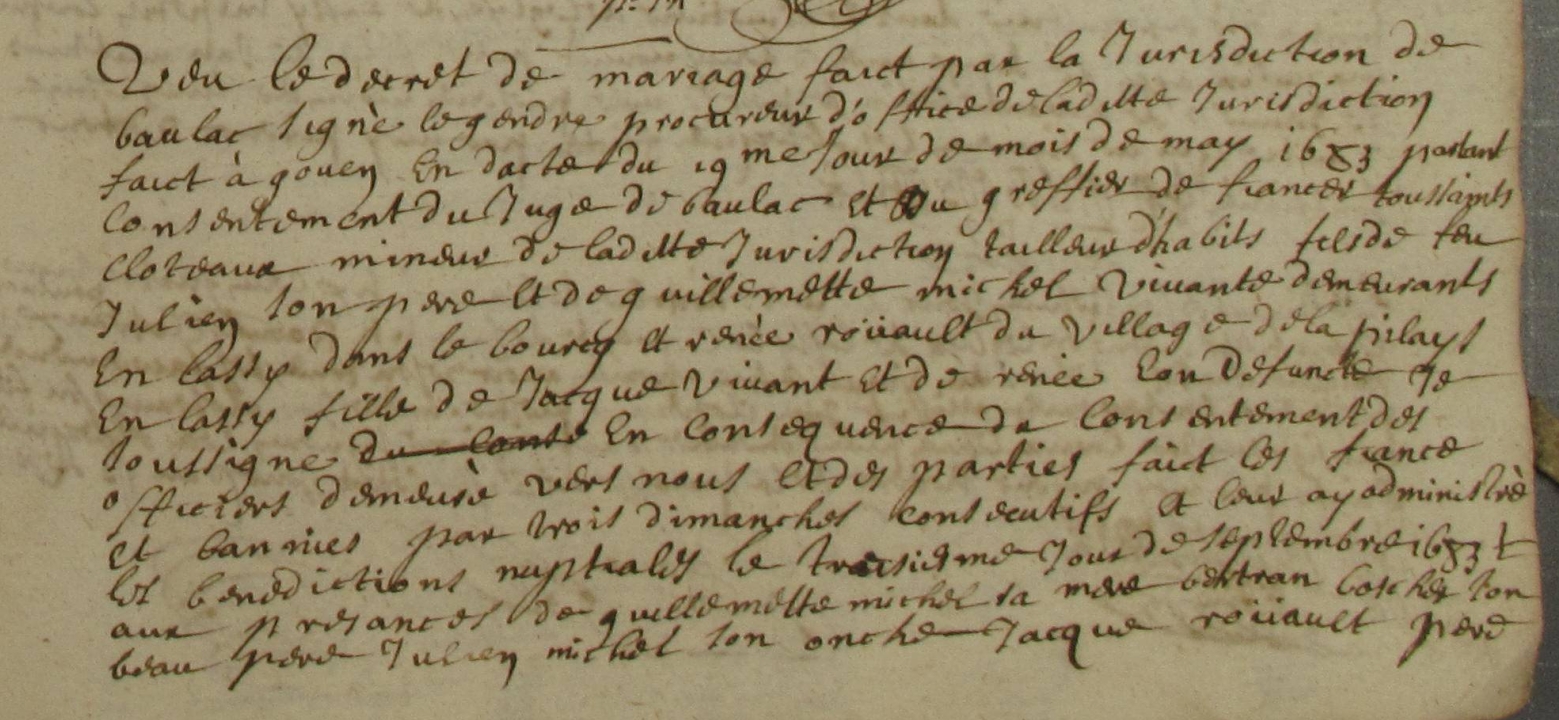 Veu le decret de mariage faict par la Jurisdiction de
baulac signè legendre procureur d'office de laditte Jurisdiction
faict à goven En dacte du 19me Jour de mois de may 1683 portant
Consentement du Juge de baulac et du greffier de fiancer toussaints
Cloteaux mineur de laditte Jurisdiction tailleur d'habits fils de feu
Julien son pere et de guillemette michel vivante demeurants
En lassy dans le bourg et renèe roüault du village de la pilays
En lassy fille de Jacque vivant et de renèe Lon defuncte Je
soussigne du conse En consequence du Consentement des
officiers demeurè vers nous et des parties faict les fiance
et bannies par trois dimanches consecutifs et leur ay administrè
les benedictions nuptiales le troisiesme Jour de septembre 1683
aux presances de guillemette michel sa mere bertran boscher son
beau pere Julien michel son oncle Jacque roüault pere